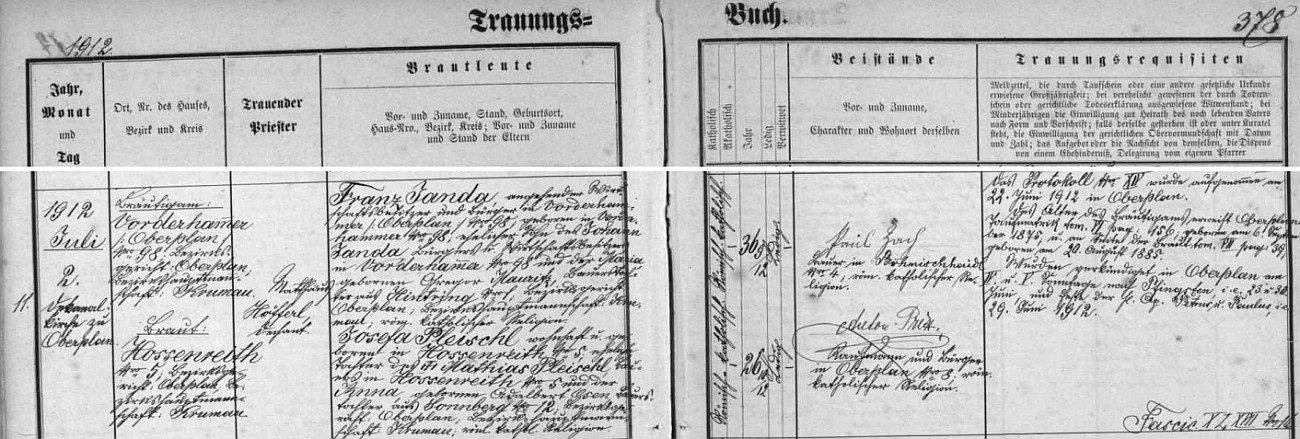 Trauungs=
Buch.
378
1912.
Jahr,
Monat
und
Tag
Ort, Nr. des Hauses,
Bezirk und Kreis
Trauender
Priester
Brautleute
Vor- und Zuname, Stand, Geburtsort,
Haus-Nro., Bezirk, Kreis; Vor- und Zuname
und Stand der Eltern
Katholisch
Akatholisch
Jahr
Ledig
Verwitwet
Beistände
Vor- und Zuname,
Charakter und Wohnort derselben
Trauungsrequisiten
Meldzettel, die durch Taufschein oder eine andere gesetzliche Urkunde
erwiesene Großjährigkeit; bei verehelicht gewesenen der durch Todten-
schein oder gerichtliche Todeserklärung ausgewiesene Witwenstand; bei
Minderjährigen die Einwilligung zur Heirath des noch lebenden Vaters
nach Form und Vorschrift; falls derselbe gestorben ist oder unter Kuratel
steht, die Einwilligung der gerichtlichen Obervormundschaft mit Datum
und Zahl; das Aufgebot oder die Nachsicht von demselben, die Dispens
von einem Ehehinderniß, Delegirung vom eigenen Pfarrer
11.
1912
Juli
2.
Dekanal-
kirche zu
Oberplan
Bräutigam:
Vorderhamer
Oberplan
Nro 98. Bezirks-
gericht: Oberplan,
Bezirkshauptmann-
schaft: Krumau.
Braut:
Hossenreith
Nro 5, Bezirksge-
richt: Oberplan, Be-
zirkshauptmann-
schaft: Krumau.
Matthäus
Höfferl
Dechant
Franz Janda, angehender Wirt-
schaftsbesitzer und Bürger in Vorderham-
mer Oberplan Nro 98, geboren in Vorder-
hammer Nro 98, ehelicher Sohn des Johann
Janda, Bürgers u. Wirtschaftsbesitzers
in Vorderhamer Nro 98 und der Maria
gebornen Gregor Mauritz, Bauers-
ter aus Hintring Nro 1, Bezirksgericht
Oberplan, Bezirkshauptmannschaft: Kru-
mau, röm. katholischer Religion.
Josefa Pleischl wohnhaft u. ge-
borent in Hossenreith Nro 5, eheliche
Tochter des Mathias Pleischl, Bau-
ers in Hossenreith Nro 5 und der
Anna, gebornen Adalbert Osen, Bauers-
tochter aus Sonnberg Nro 12, Bezirksge-
richt: Oberplan, Bezirkshauptmann-
schaft: Krumau, röm. kathol. Religion.
Römisch-katholisch
Römisch-katholisch
36
12
Ledig
26
12
Ledig
Paul Zach
Bauer in Nro 4, röm. katholischer Re-
ligion.
Anton
Kaufmann und Bürger
in Oberplan Nro 8, röm.
katholischer Religion.
Das Protokoll Nro XV wurde aufgenommen am
22. Juni 1912 in Oberplan.
Das Alter des Bräutigams erweist Oberplaner
Taufmatrik tom. VI pag. 156, geboren am 6.
ber 1875, u. am Ende der Braut tom. VII pag. 39,
geboren am 20. August 1885.
Wurden verkündigt in Oberplan am
IV. u. V. Sonntage nach Pfingsten, i. e. 23. u. 30.
Juni und Feste der hl. Ap. Petrus u. Paulus, i. e.
29. Juni 1912.
Fascic XLXIII Nro